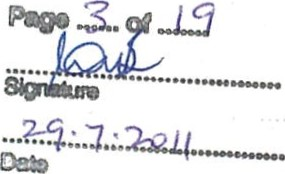 Page 3 of 19
Signature
29.7.2011
Date